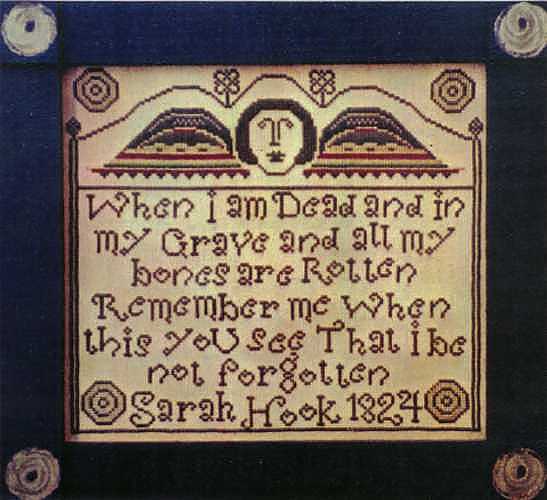 When i am Dead and in
my Grave and all my
bones are Rotten
Remember me When
this yoU see That i be
not forgotten
Sarah Hook 1824